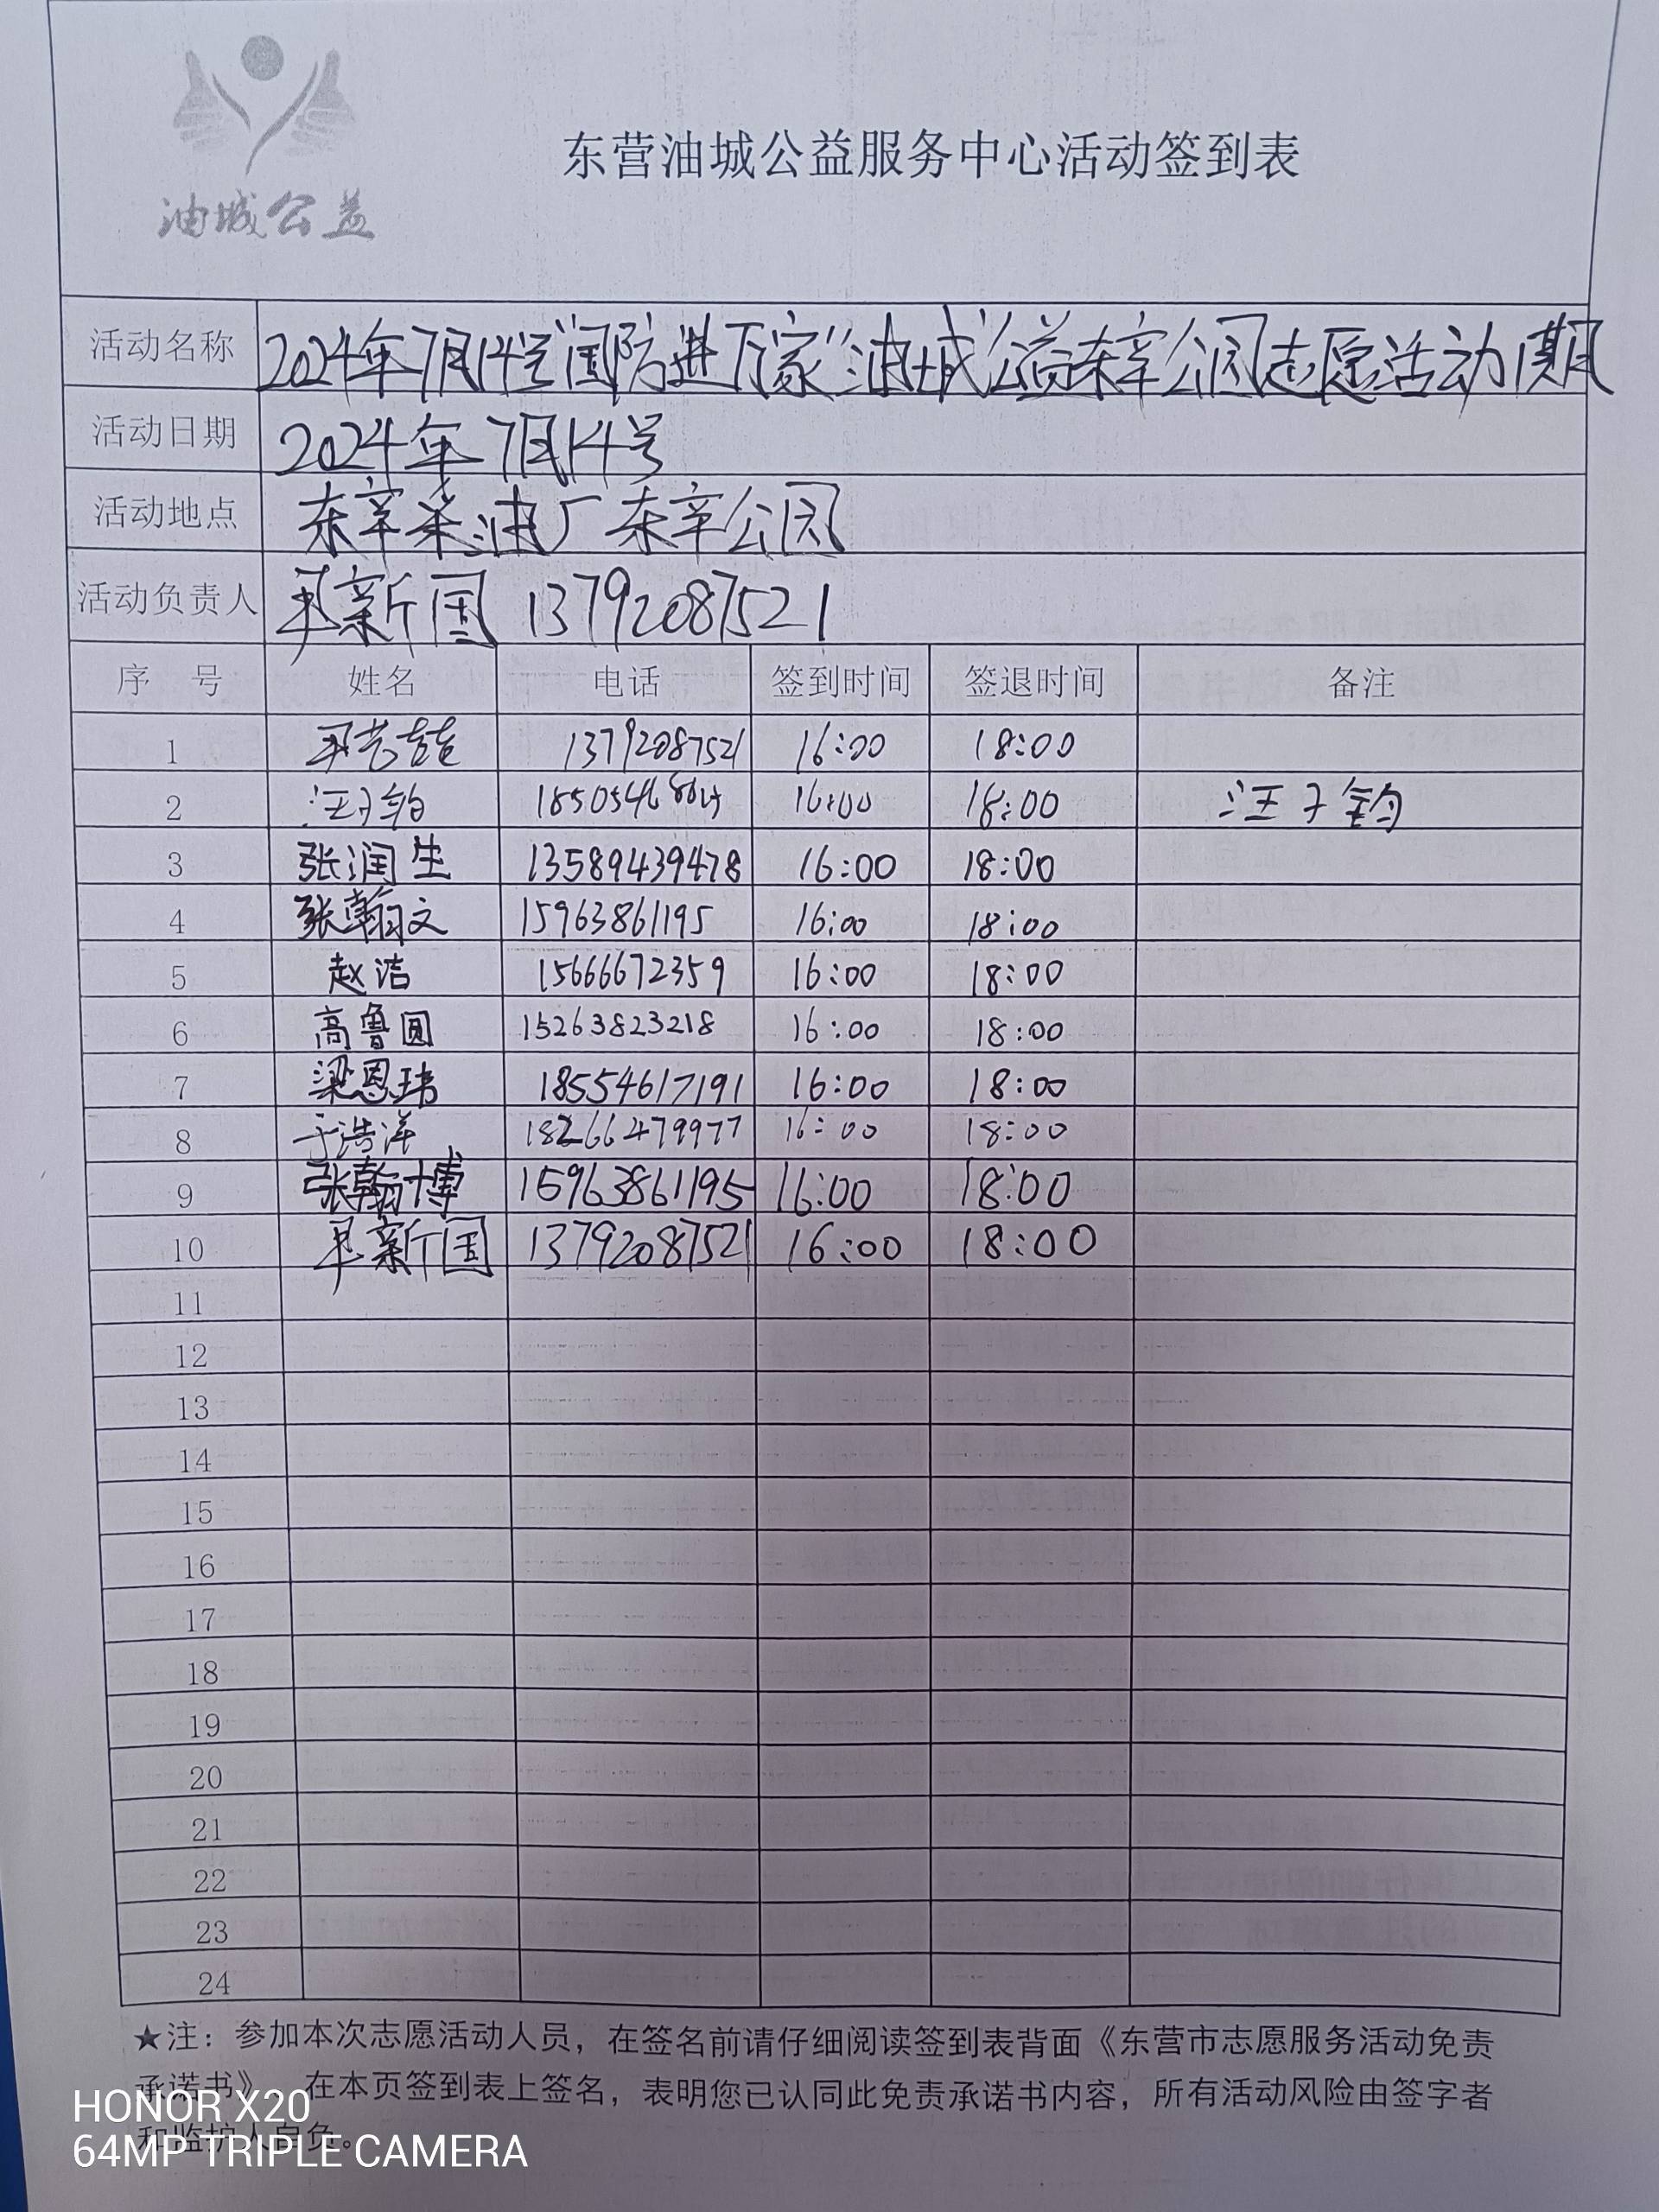 油城公益
东营油城公益服务中心活动签到表
活动名称 2024年7月14号"国防进万家"油城公益东辛公园志愿活动1期
活动日期 2024年7月14号
活动地点 东辛采油厂东辛公园
活动负责人 新国 13792087521
序 号 姓名 电话 签到时间 签退时间 备注
1 13792087521 16:00 18:00
2 汪子钧 1850546 16:00 18:00 汪子钧
3 张润生 13589439478 16:00 18:00
4 张翰文 15963861195 16:00 18:00
5 赵洁 15666672359 16:00 18:00
6 高鲁圆 15263823218 16:00 18:00
7 梁恩玮 18554617191 16:00 18:00
8 于浩洋 18266479977 16:00 18:00
9 张翰博 15963861195 16:00 18:00
10 新国 13792087521 16:00 18:00
11
12
13
14
15
16
17
18
19
20
21
22
23
24
★注：参加本次志愿活动人员，在签名前请仔细阅读签到表背面《东营市志愿服务活动免责
承诺书》，在本页签到表上签名，表明您已认同此免责承诺书内容，所有活动风险由签字者
和监护人自负。
HONOR X20
64MP TRIPLE CAMERA